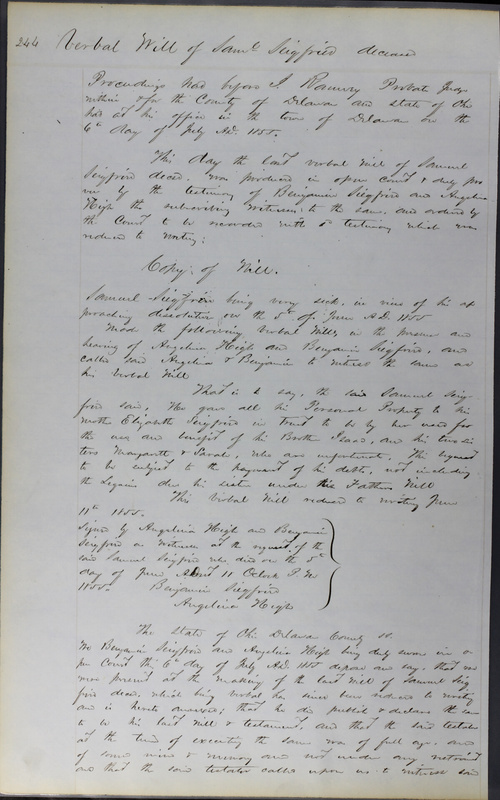 244 Verbal Will of Sam.l Siegfried deceased
Proceedings had before T. Probate Judge
within & for the County of Delaware and state of Ohio
had at his office in the town of Delaware on the
6th day of July AD. 1855.
This day the last verbal Will of Samuel
Siegfried deced. was produced in open court & duly pro
ven by the testimony of Benjamin Siegfried and Angelina
High the subscribing witnesses to the same, and ordered by
the Court to be recorded with testimony which was
reduced to writing;
Copy of Will.
Samuel Siegfried being very sick, in view of his ap
proaching dissolution on the 5th of June AD. 1855
Made the following Verbal Will, in the presence and
hearing of Angelina High and Benjamin Siegfried, and
called said Angelina & Benjamin to witness the same as
his Verbal Will
That is to say, the said Samuel Sieg-
fried said, He gave all his Personal Property to his
mother Elizabeth Siegfried in trust to be by her used for
the use and benefit of his Brother Isaac, and his two sis
ters Margarett & Sarah, who are unfortunate. This bequest
to be subject to the payment of his debts, not including
the Legacies due his sister under his Fathers Will
This Verbal Will reduced to writing June
11th 1855.
Signed by Angelina High and Benjamin
Siegfried as Witnesses at the request of the
said Samuel Siegfried who died on the 5th
day of June, About 11 Oclock P. M.
1855. Benjamin Siegfried
Angelina High
The State of Ohio Delaware County ss.
We Benjamin Siegfried and Angelina High being duly sworn in o
pen Court this 6th day of July AD 1855 depose and say, that we
were present at the making of the last Will of Samuel Sieg
fried deced. which being verbal has since been reduced to writing
and is hereto annexed; that he did publish & declare the same
to be his last Will & testament, and that the said testator
at the time of executing the same was of full age, and
of sound mind & memory and not under any restraint
and that the said testator called upon us to witness said